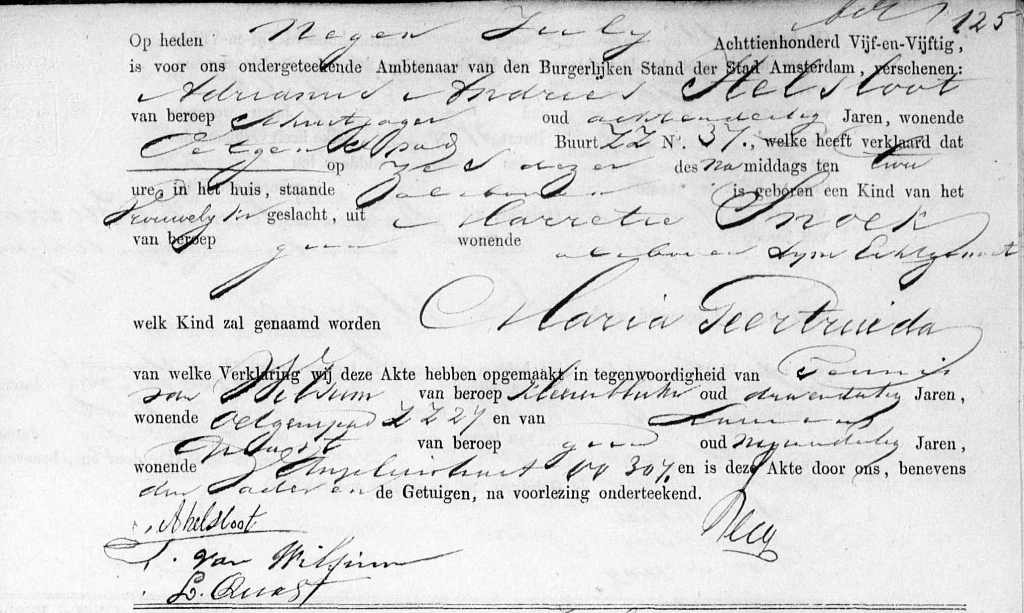 125
Op heden Negen July Achttienhonderd Vijf-en-Vijftig,
is voor ons ondergeteekende Ambtenaar van den Burgerlijken Stand der Stad Amsterdam, verschenen:
Adrianus Andries Helsloot
van beroep oud achtendertig Jaren, wonende
Buurt ZZ No. 37., welke heeft verklaard dat
op Zes dezer des Namiddags ten twee
ure, in het huis, staande is geboren een Kind van het
Vrouwelijk geslacht, uit Marretie Snoek
van beroep geen wonende
welk Kind zal genaamd worden Maria Geertruida
van welke Verklaring wij deze Akte hebben opgemaakt in tegenwoordigheid van Teunis
van Wilsum van beroep oud Jaren,
wonende ZZ 27 en van
Quast van beroep geen oud Jaren,
wonende 307. en is deze Akte door ons, benevens
den vader en de Getuigen, na voorlezing onderteekend.
AHelsloot
T. van Wilsum
L. Quast